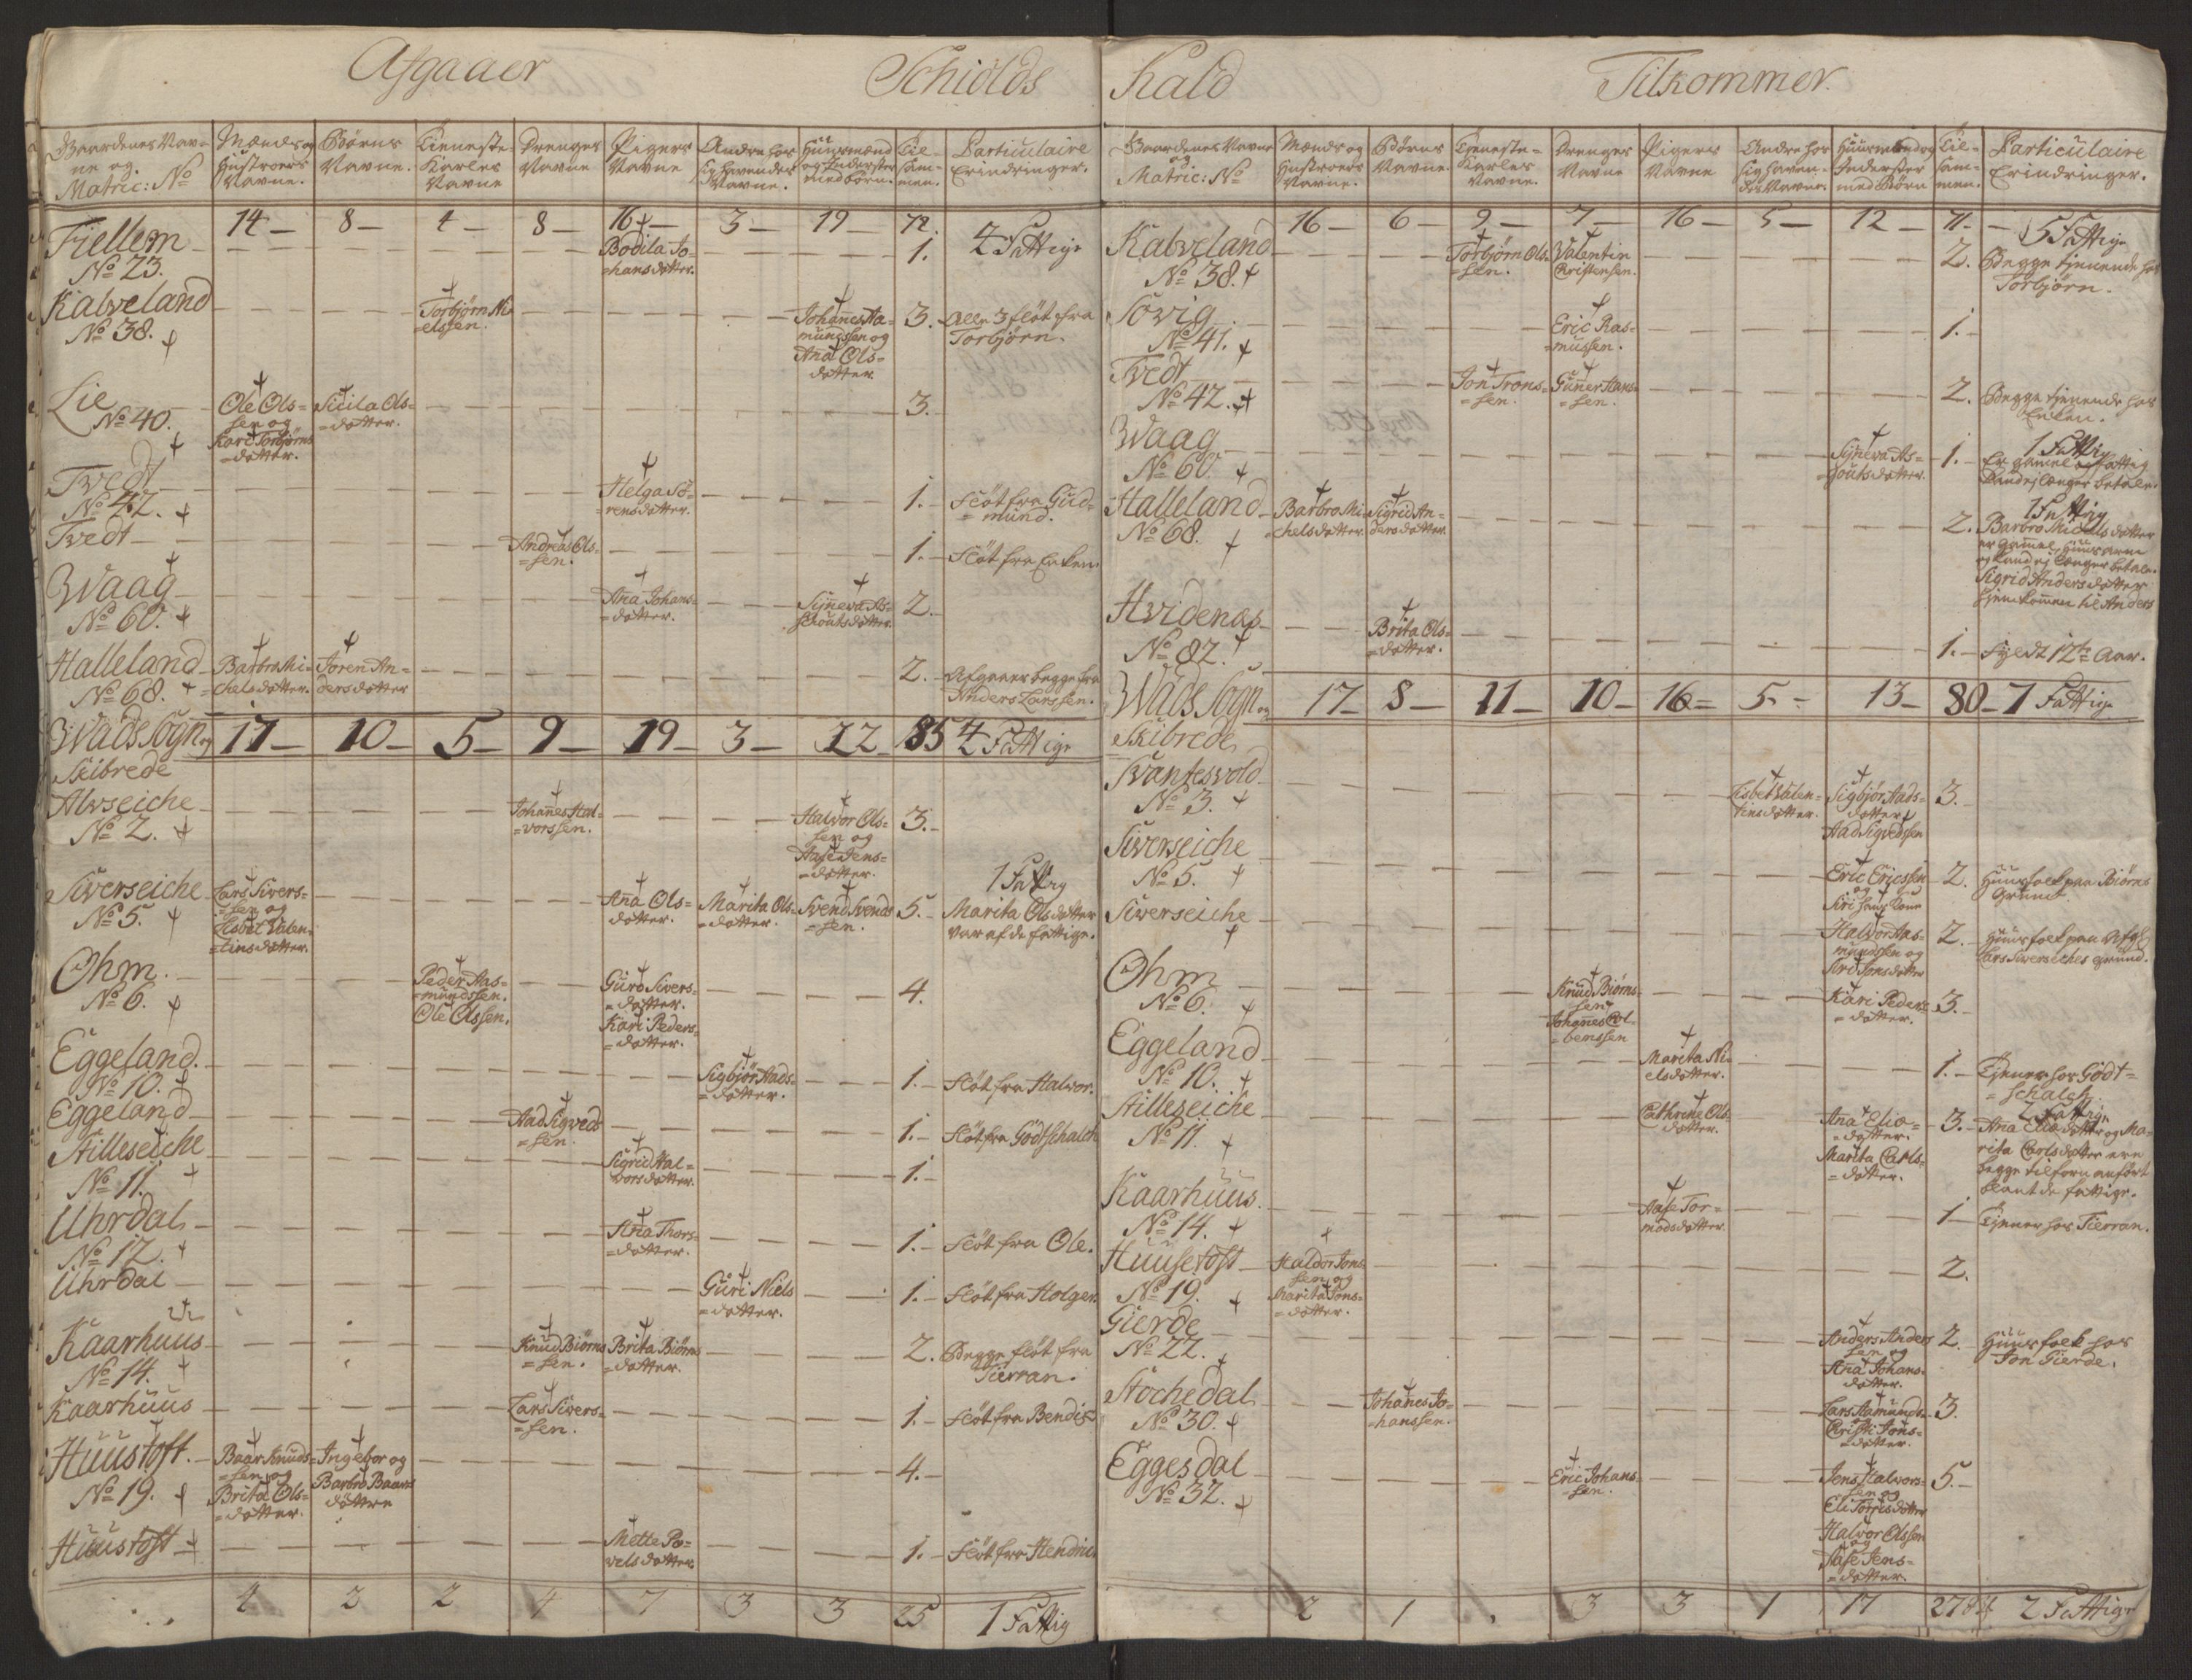 Afgaaer
Schiolds
Gaardenes Nav=
ne og
Matric: No
Mænds og
Hustroers
Navne.
Børns
Navne.
Tieneste
Karles
Navne
Drenges
Navne
Pigers
Navne
Andre hos
sig havendes
Navne.
Huusmænd
og Inderster
med børn.
Til=
sam=
men.
Particulaire
Erindringer.
14 — 8 — 4 — 8 — 16 — 3 — 19 — 72.
4 Fattige
Fjellem
No 23.
Bodila Jo=
=hansdotter.
1.
Kalveland
No 38.
Torbjørn Ni
=elssen.
Johannes Aa=
mundssen og
Ana Ols=
dotter
3. Alle 3 fløt fra
Torbjørn.
Lie
No 40.
Ole Ols=
sen og
Kari Torbjørns
=dotter.
Sicila Ols=
=dotter.
3.
Tvedt
No 42.
Helga Sø=
=rensdotter.
1. Fløt fra Gud=
=mund.
Tvedt
Andreas Ols=
=sen.
1. Fløt fra Enken.
Waag
No 60.
Ana Johans=
=dotter.
Sÿneva As=
=goutsdotter.
2.
Halleland
No 68.
Barbro Mi=
=chelsdotter.
Joren An=
dersdotter
2. Afgaaer begge fra
Anders Larssen.
Wads Sogn og
Skibrede
17 — 10 — 5 — 9 — 19 — 3 — 22 — 85 4 Fattige
Alvseiche
No 2.
Johannes Hal=
=vorssen.
Halvor Ols=
sen og
Aase Jens=
=dotter.
3.
Siverseiche
No 5.
Lars Sivers=
=sen og
Lisbet Valen=
=tinsdotter.
Ana Ols=
dotter.
Marita Ols=
=dotter.
Svend Svends
=sen.
5.
1 Fattig
Marita Olsdotter
var af de fattige.
Ohm.
No 6.
Peder Aas=
=mundssen.
Ole Olssen.
Guro Sivers=
=dotter.
Kari Peders=
=dotter.
4.
Eggeland.
No 10.
Sigbjør Aads=
=dotter.
1. Fløt fra Halvor.
Eggeland
Aad Sigveds
=sen.
1. Fløt fra Godtschalch
Stilleseiche
No 11.
Sigrid Hal=
vorsdotter.
1.
Uhrdal
No 12.
Ana Thors=
=dotter.
1. Fløt fra Ole.
Uhrdal
Guri Niels
=dotter.
1. Fløt fra Holger
Kaarhuus
No 14.
Knud Biørns
=sen.
Brita Biørns
=dotter.
2. Begge fløt fra
Tierran.
Kaarhuus
Lars Sivers=
=sen.
1. Fløt fra Bendix
Huustoft.
No 19.
Baar Knuds=
=sen og
Brita Ols=
=dotter.
Ingebor og
Barbro Baars
døttre
4.
Huustoft
Mette Po=
velsdotter.
1. Fløt fra Hendric
4 2 2 4 7 3 3 25 1 Fattig
Kald
Tilkommer.
Gaardenes Navne
og
Matric: No
Mænds og
Hustroers
Navne.
Børns
Navne.
Tjeneste=
Karles
Navne.
Drenges
Navne
Pigers
Navne
Andre hos
sig haven=
des Navne.
Huusmænd og
Inderster
med Børn
Til=
sam=
men.
Particulaire
Erindringer.
16 — 6 — 9 — 7 — 16 — 5 — 12 — 71. 5 Fattige
Kalveland
No 38.
Torbjørn Ols=
=sen.
Valentin
Christensen.
2. Begge tjenende hos
Torbjørn.
Søvig
No 41.
Eric Ras=
=mussen.
1.
Tvedt
No 42.
Jon Trons=
=sen.
Guner Hans=
=sen.
2. Begge tjenende hos
Enken.
Waag
No 60.
Sÿneva As=
=goutsdotter.
1.
1 Fattig
Er gamel og fattig
kand ej længer betale.
Halleland
No 68.
Barbro Mi=
=chelsdotter.
Sigrid An=
dersdotter.
2.
1 Fattig
Barbro Michelsdotter
er gamel Huusarm
og kand ej længer betale.
Sigrid Andersdotter
hjemkommen til Anders
Hvidenæs
No 82.
Brita Ols=
=dotter.
1. Fyldt 12te Aar.
Wads Sogn og
Skibrede
17 — 8 — 11 — 10 — 16 — 5. — 13 — 80 — 7 Fattige
Svantesvold
No 3.
Lisbet Valen=
tinsdotter.
Sigbjør Aads=
dotter
Aad Sigvedssen
3.
Siverseiche
No 5.
Eric Ericssen
og
Siri hans Kone
2. Huusfolk paa Biørns
Grund.
Siverseiche
Halvor Aas=
mundssen og
Siri Jonsdotter
2. Huusfolk paa Afg:
Lars Siverseiches grund.
Ohm
No 6.
Knud Biørns=
sen
Johannes Col=
=bemssen
Kari Peders
=dotter.
3.
Eggeland
No 10.
Marita Ni=
elsdotter.
1. Tjener hos Godt=
=schalch.
Stilleseiche
No 11.
Cathrine Ols=
dotter.
Ana Elia=
=dotter.
Marita Carls=
=dotter.
3.
2 Fattige
Ana Eliadotter og Ma=
rita Carlsdotter ere
begge tilforn anført
blant de fattige.
Kaarhuus.
No 14.
Aase Tor=
modsdotter.
1 Tjener hos Tierran.
Huusetoft
No 19.
Haldor Jons
sen og
Marita Jons=
=dotter.
2.
Gierde
No 22.
Anders Anders
sen og
Ana Johans=
dotter.
2. Huusfolk hos
Jon Gierde.
Stochedal
No 30.
Johannes Jo=
=hanssen.
Lars Aamunds=
og
Christi Jons=
=dotter.
3.
Eggesdal
No 32.
Eric Johans=
=sen.
Jens Halvors=
sen og
Eli Torrisdotter
Halvor Olssen
og
Aase Jens=
=dotter.
5.
2 1 3 3 1 17 27 2 Fattige